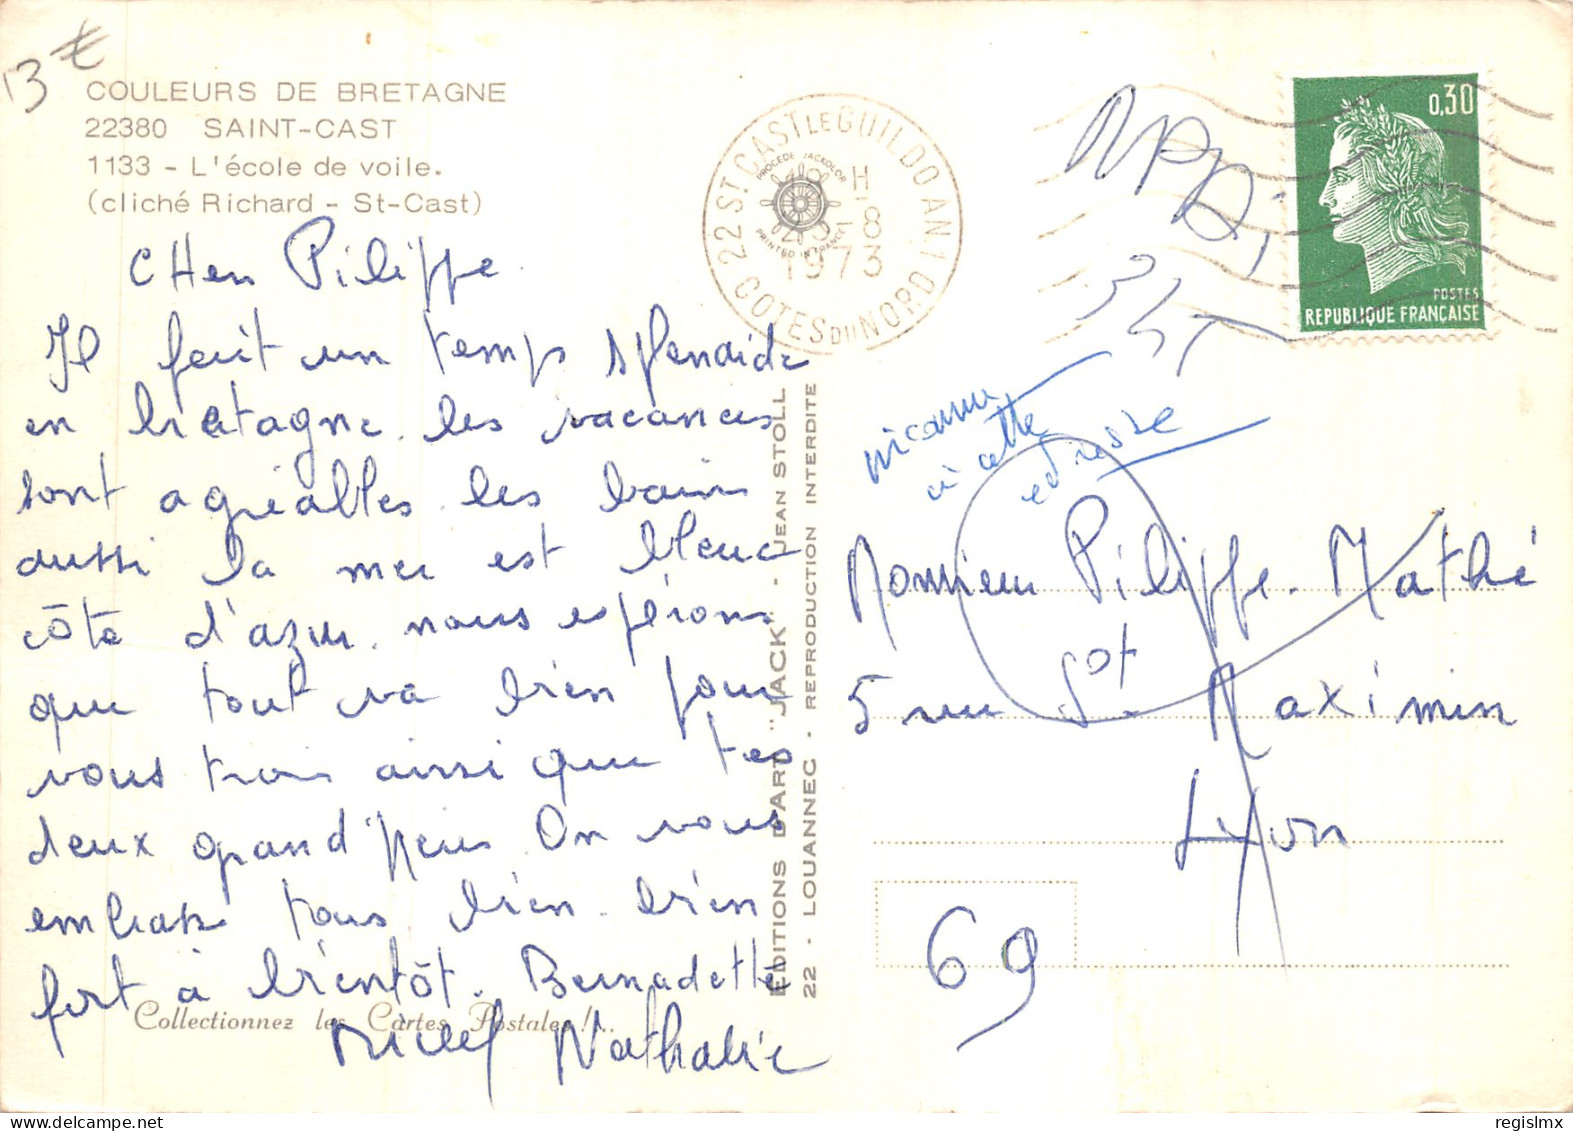 13 €
COULEURS DE BRETAGNE
22380 SAINT-CAST
1133 - L'école de voile.
(cliché Richard - St-Cast)
22 ST CAST LE GUILDO AN.1
COTES DU NORD
PROCEDE JACKOLOR
PRINTED IN FRANCE
H
-8
1973
0,30
POSTES
REPUBLIQUE FRANÇAISE
NPDi
inconnu
à cette
adresse
CHer Pilippe
Il fait un temps splendide
en bretagne. les vacances
sont agréables. les bains
aussi la mer est bleue
côte d'azur. nous espérons
que tout va bien pour
vous trois ainsi que tes
deux grand'pères. On vous
embrasse tous bien. bien
fort à bientôt. Bernadette
Michel Nathalie
Collectionnez les Cartes Postales !...
EDITIONS D'ART "JACK" - JEAN STOLL
22 - LOUANNEC - REPRODUCTION INTERDITE
Monsieur Pilippe. Mathé
5 rue St. Maximin
Lyon
69
regislmx